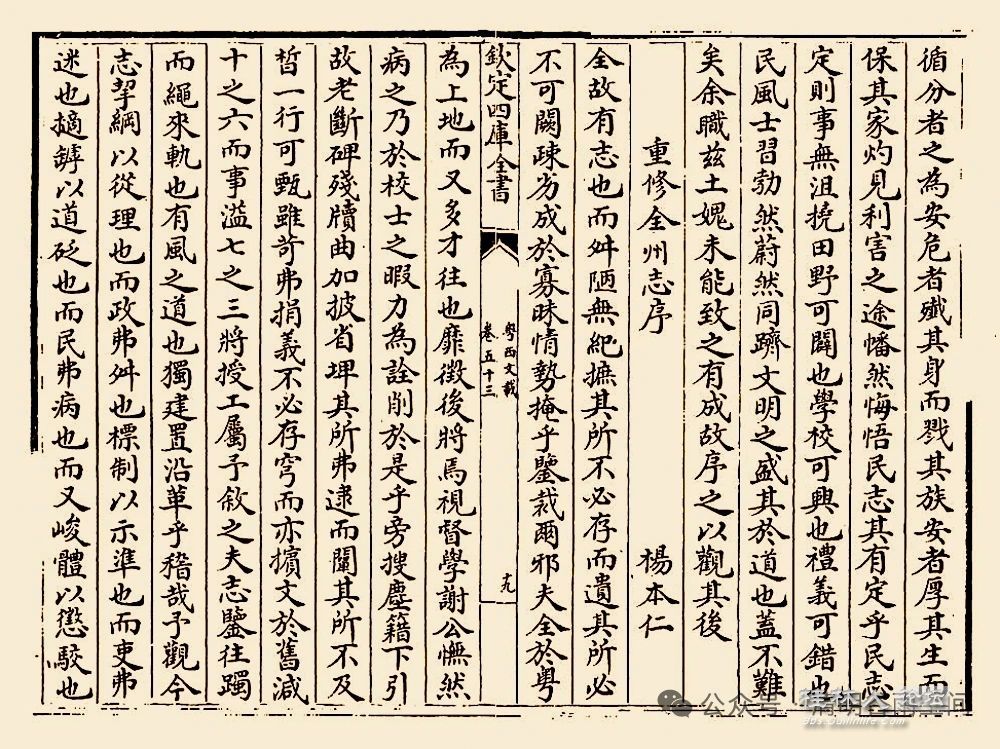 循分者之為安危者殲其身而戮其族安者厚其生而
保其家灼見利害之途幡然悔悟民志其有定乎民志
定則事無沮撓田野可闢也學校可興也禮義可錯也
民風士習勃然蔚然同躋文明之盛其於道也蓋不難
矣余職茲土媿未能致之有成故序之以觀其後
重修全州志序 楊本仁
全故有志也而舛陋無紀摭其所不必存而遺其所必
不可闕疎劣成於寡昧情勢掩乎鑒裁爾邪夫全於粵
欽定四庫全書
粵西文載
卷五十三
十九
為上地而又多才往也靡徵後將焉視督學謝公憮然
病之乃於校士之暇力為詮削於是乎旁搜塵籍下引
故老斷碑殘牘曲加披省埤其所弗逮而闡其所不及
晳一行可甄雖苛弗捐義不必存穹而亦擯文於舊減
十之六而事溢七之三將授工屬予敘之夫志鑒往躅
而繩來軌也有風之道也獨建置沿革乎稽哉予觀今
志挈綱以從理也而政弗舛也標制以示準也而吏弗
迷也摘罅以道砭也而民弗病也而又峻體以懲駮也
公众号